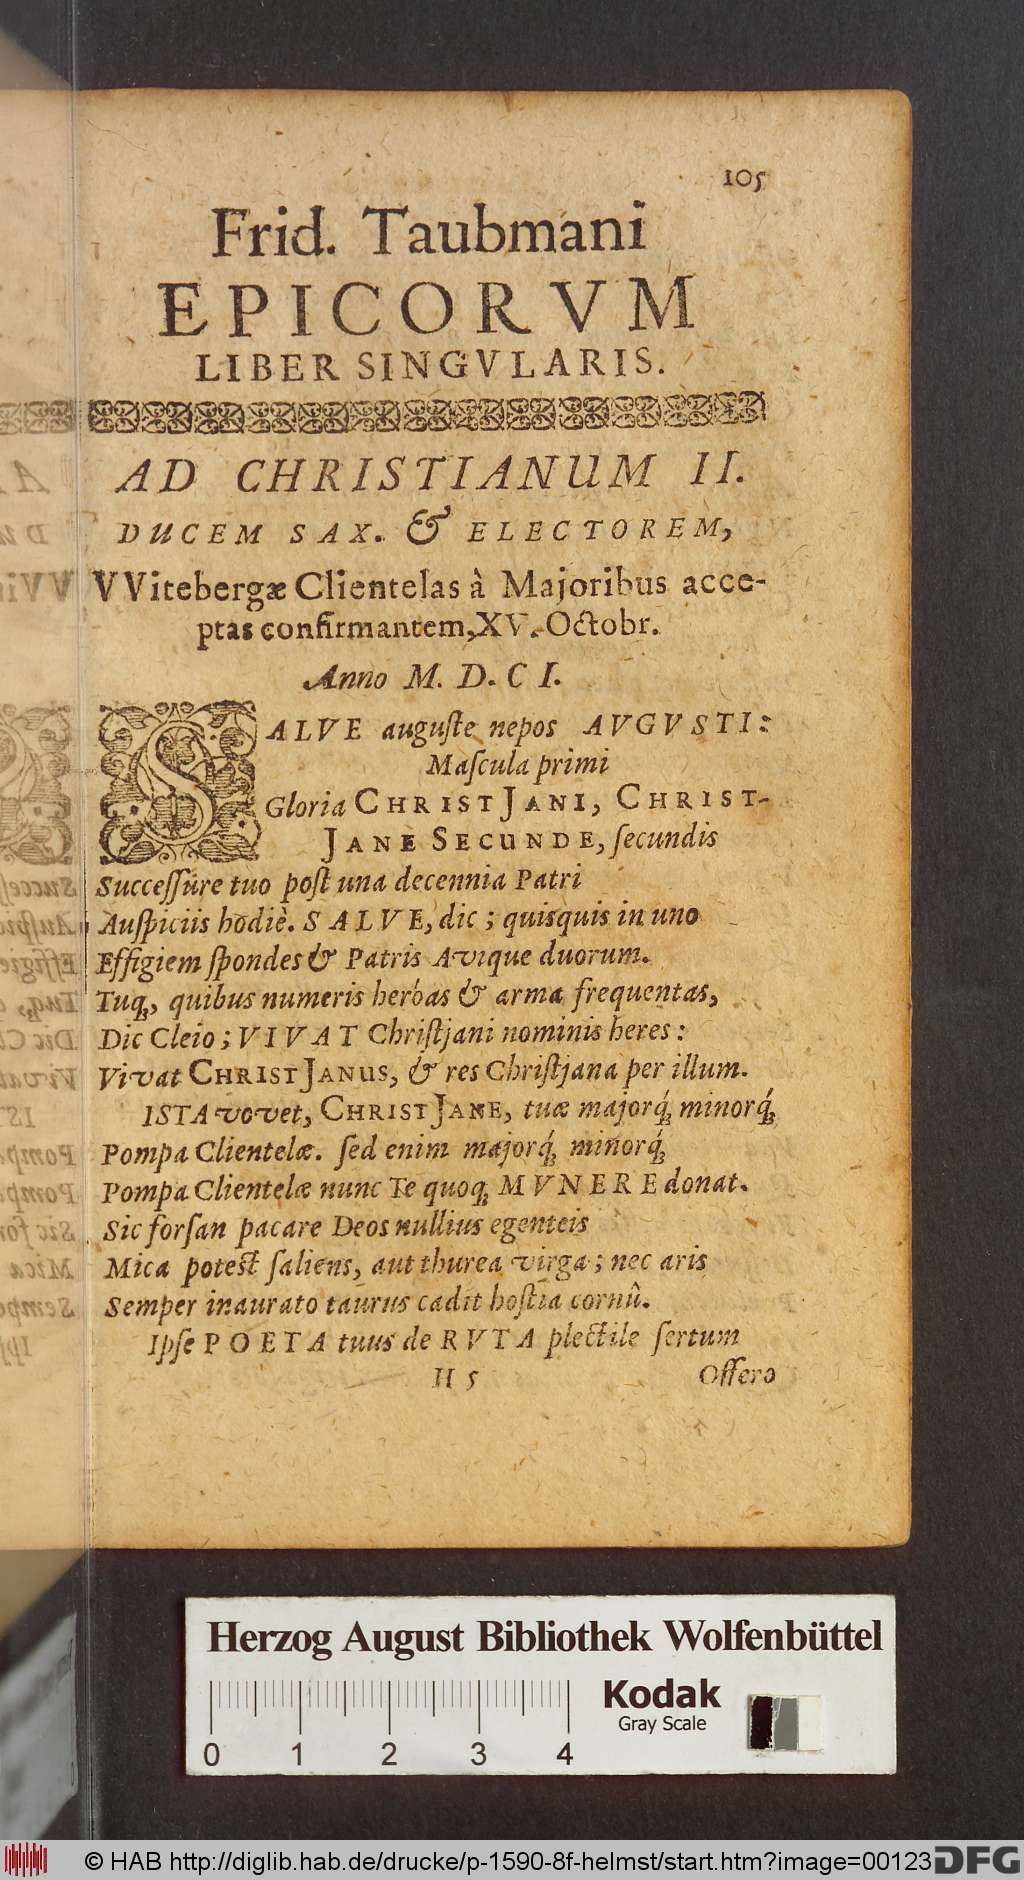 105
Frid. Taubmani
EPICORVM
LIBER SINGVLARIS.
AD CHRISTIANUM II.
DUCEM SAX. & ELECTOREM,
VVitebergæ Clientelas à Majoribus acce-
ptas confirmantem, XV. Octobr.
Anno M. D. C I.
SALVE auguſte nepos AVGVSTI:
Maſcula primi
Gloria CHRISTJANI, CHRIST-
JANE SECUNDE, ſecundis
Succeſſûre tuo poſt una decennia Patri
Auſpiciis hodiè. SALVE, dic; quisquis in uno
Effigiem ſpondes & Patris Avique duorum.
Tuq́ꝫ, quibus numeris heroas & arma frequentas,
Dic Cleio; VIVAT Chriſtjani nominis heres:
Vivat CHRISTJANUS, & res Chriſtjana per illum.
ISTA vovet, CHRISTJANE, tuæ majorq́ꝫ minorq́ꝫ
Pompa Clientelæ. ſed enim majorq́ꝫ minorq́ꝫ
Pompa Clientelæ nunc Te quoqꝫ MVNERE donat.
Sic forſan pacare Deos nullius egenteis
Mica poteſt ſaliens, aut thurea virga; nec aris
Semper inaurato taurus cadit hoſtia cornû.
Ipſe POETA tuus de RVTA plectile ſertum
H 5 Offero
Herzog August Bibliothek Wolfenbüttel
Kodak
Gray Scale
0 1 2 3 4
© HAB http://diglib.hab.de/drucke/p-1590-8f-helmst/start.htm?image=00123
DFG